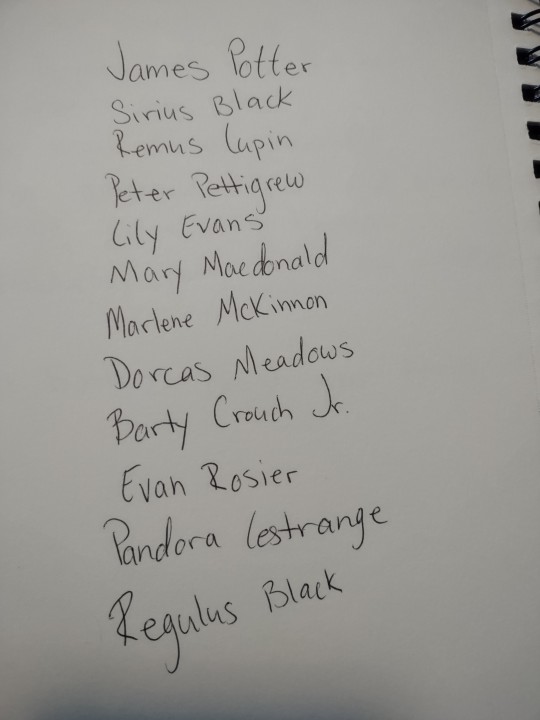 James Potter
Sirius Black
Remus Lupin
Peter Pettigrew
Lily Evans
Mary Macdonald
Marlene McKinnon
Dorcas Meadows
Barty Crouch Jr.
Evan Rosier
Pandora Lestrange
Regulus Black